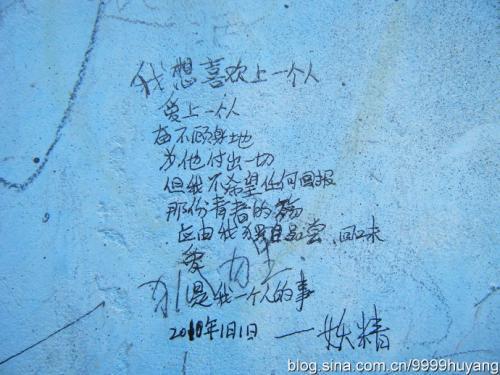 我想喜欢上一个人
爱上一个人
奋不顾身地
为他付出一切
但我不希望任何回报
那份青春的
应由我独自品尝、回味
爱
是我一个人的事
2010年1月1
一妖精
blog.sina.com.cn/9999huyang